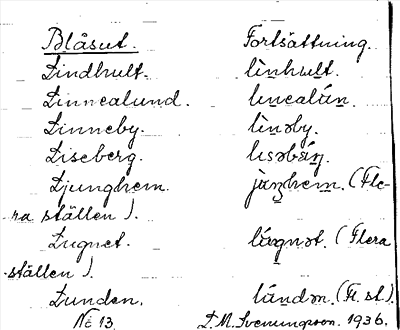 Blåsut. Fortsättning.
Lindhult. lìnhult.
Linnealund. linealún.
Linneby. lìnəby.
Liseberg. lisəbáŋ.
Ljunghem. jàŋhem. (Fle-
ra ställen).
Lugnet. láŋnət. (Flera
ställen).
Lunden. lándən. (Fl. st.).
№ 13 L. M. Svenungsson. 1936.